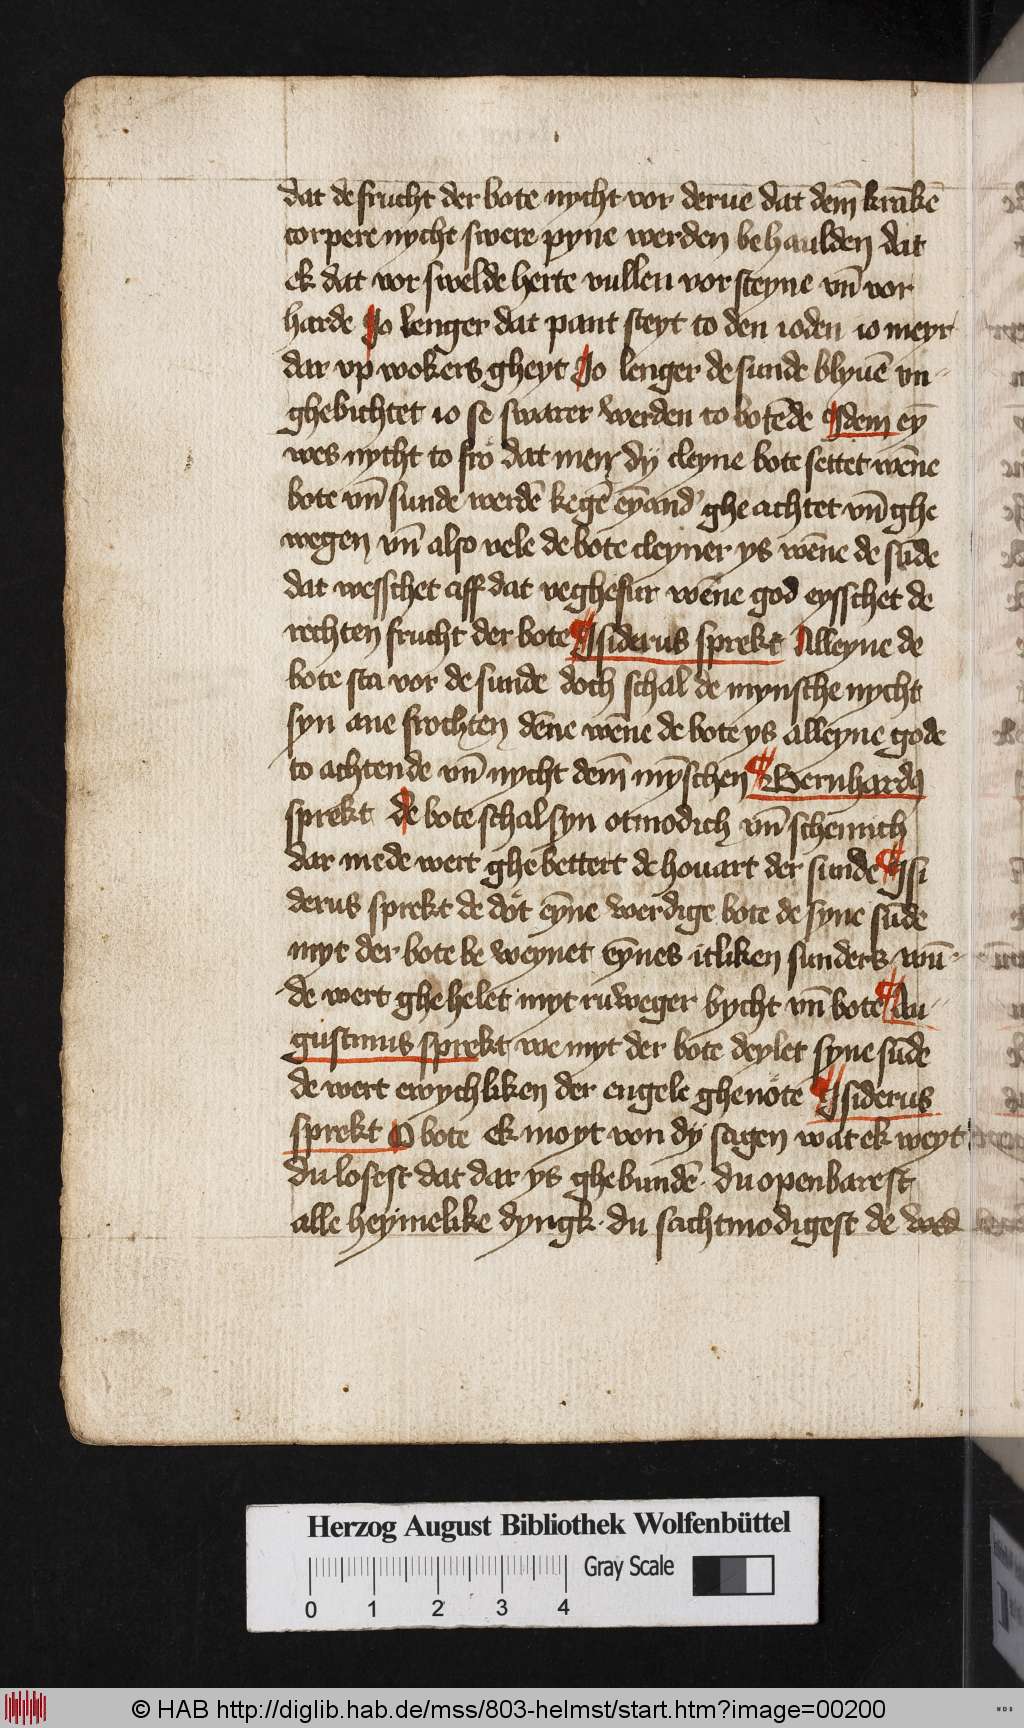 dat de frucht der bote nycht vor deruē dat dem̄ krākē
corpere nycht swere pyne werden be haulden dat
ek dat vor swelde herte vullen vor steyne vn̄ vor
harde Jo lenger dat pant steyt to den ioden io meyr
dar vp wokers gheyt Jo lenger de sunde blyuē vn-
ghebichtet io se swarer werden to botēde ¶ Idem eȳ
wes nycht to fro dat men dy cleyne bote settet wēne
bote vn̄ sunde werdē kegē eȳand' ghe achtet vn̄ ghe
wegen vn̄ also vele de bote cleyner ys wēne de sūde
dat wesschet aff dat veghefur wēne god eysschet de
rechten frucht der bote ¶ Isiderus sprekt Alleyne de
bote sta vor de sunde doch schal de mynsche nycht
syn ane frochten dēne wēne de bote ys alleyne gode
to achtende vn̄ nycht dem̄ mȳschen ¶ Bernhardꝯ
sprekt de bote schal syn otmodich vn̄ schemich
dar mede wert ghe bettert de houart der sunde ¶ Isi
derus sprekt de dot eȳne werdige bote de syne sūde
myt der bote be weynet eȳnes itliken sunders wū-
de wert ghe helet myt ruweger bycht vn̄ bote ¶ Au-
gustinus sprekt we myt der bote deylet syne sūde
de wert ewychliken der engele ghenote ¶ Isiderus
sprekt O bote ek moyt von dy sagen wat ek weyt
du losest dat dar ys ghe bundē · du openbarest
alle heymelike dyngk · du sachtmodigest de
Herzog August Bibliothek Wolfenbüttel
Gray Scale
0 1 2 3 4
© HAB http://diglib.hab.de/mss/803-helmst/start.htm?image=00200